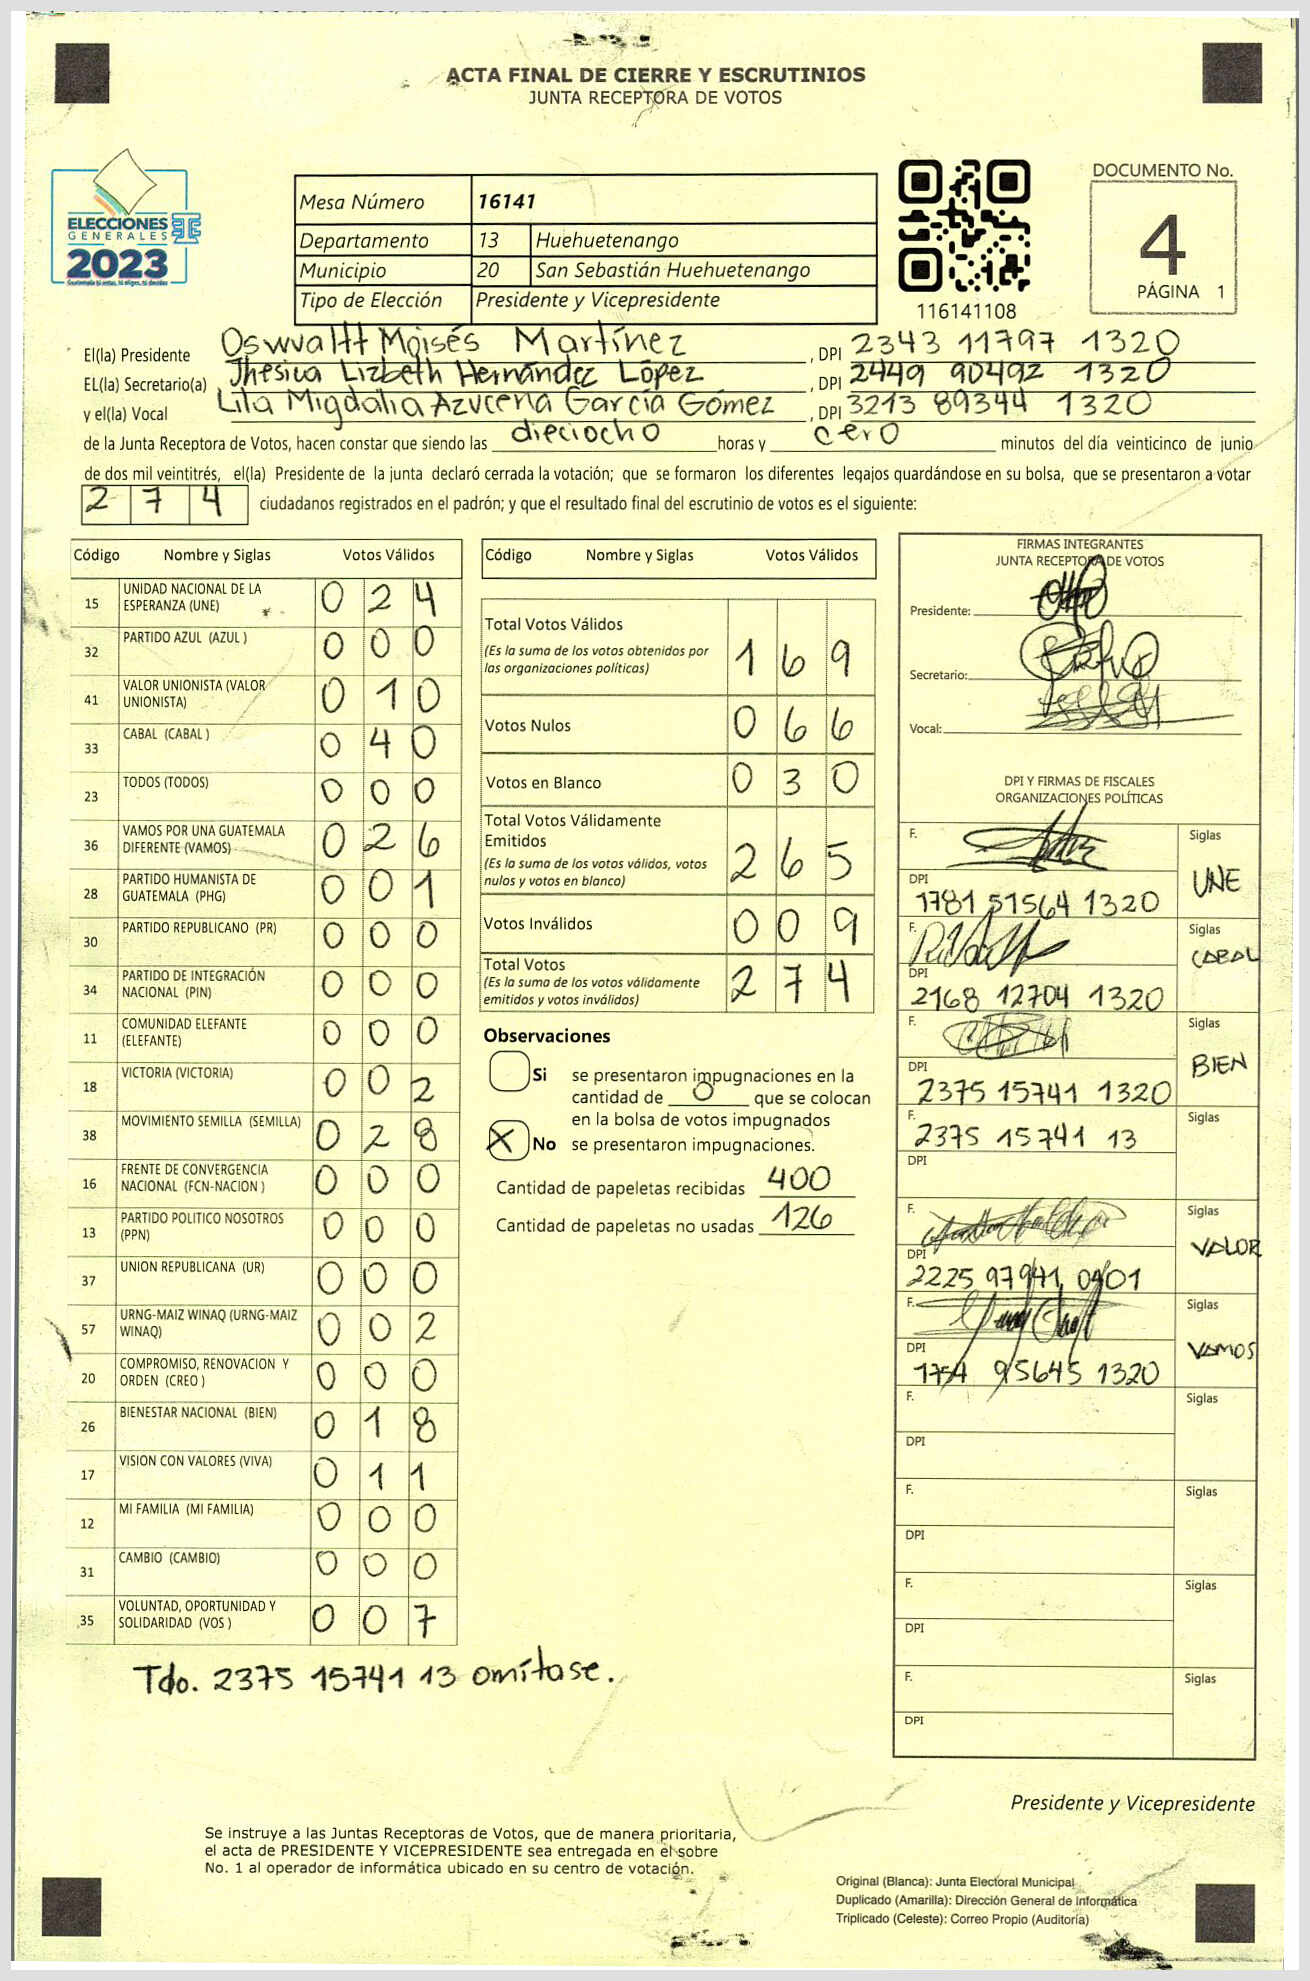 ACTA FINAL DE CIERRE Y ESCRUTINIOS
JUNTA RECEPTORA DE VOTOS
ELECCIONES
GENERALES
2023
Mesa Número 16141
Departamento 13 Huehuetenango
Municipio 20 San Sebastián Huehuetenango
Tipo de Elección Presidente y Vicepresidente
116141108
DOCUMENTO No.
4
PÁGINA 1
El(la) Presidente Oswaltt Moisés Martínez , DPI 2343 11797 1320
EL(la) Secretario(a) Jhesica Lizbeth Hernández López , DPI 2449 90492 1320
y el(la) Vocal Lita Migdalia Azucena García Gómez , DPI 3213 89344 1320
de la Junta Receptora de Votos, hacen constar que siendo las dieciocho horas y cero minutos del día veinticinco de junio
de dos mil veintitrés, el(la) Presidente de la junta declaró cerrada la votación; que se formaron los diferentes legajos guardándose en su bolsa, que se presentaron a votar
274 ciudadanos registrados en el padrón; y que el resultado final del escrutinio de votos es el siguiente:
Código Nombre y Siglas Votos Válidos
15 UNIDAD NACIONAL DE LA ESPERANZA (UNE) 0 2 4
32 PARTIDO AZUL (AZUL ) 0 0 0
41 VALOR UNIONISTA (VALOR UNIONISTA) 0 1 0
33 CABAL (CABAL ) 0 4 0
23 TODOS (TODOS) 0 0 0
36 VAMOS POR UNA GUATEMALA DIFERENTE (VAMOS) 0 2 6
28 PARTIDO HUMANISTA DE GUATEMALA (PHG) 0 0 1
30 PARTIDO REPUBLICANO (PR) 0 0 0
34 PARTIDO DE INTEGRACIÓN NACIONAL (PIN) 0 0 0
11 COMUNIDAD ELEFANTE (ELEFANTE) 0 0 0
18 VICTORIA (VICTORIA) 0 0 2
38 MOVIMIENTO SEMILLA (SEMILLA) 0 2 8
16 FRENTE DE CONVERGENCIA NACIONAL (FCN-NACION ) 0 0 0
13 PARTIDO POLITICO NOSOTROS (PPN) 0 0 0
37 UNION REPUBLICANA (UR) 0 0 0
57 URNG-MAIZ WINAQ (URNG-MAIZ WINAQ) 0 0 2
20 COMPROMISO, RENOVACION Y ORDEN (CREO ) 0 0 0
26 BIENESTAR NACIONAL (BIEN) 0 1 8
17 VISION CON VALORES (VIVA) 0 1 1
12 MI FAMILIA (MI FAMILIA) 0 0 0
31 CAMBIO (CAMBIO) 0 0 0
35 VOLUNTAD, OPORTUNIDAD Y SOLIDARIDAD (VOS ) 0 0 7
Tdo. 2375 15741 13 omítase.
Código Nombre y Siglas Votos Válidos
Total Votos Válidos 1 6 9
(Es la suma de los votos obtenidos por
las organizaciones políticas)
Votos Nulos 0 6 6
Votos en Blanco 0 3 0
Total Votos Válidamente
Emitidos 2 6 5
(Es la suma de los votos válidos, votos
nulos y votos en blanco)
Votos Inválidos 0 0 9
Total Votos 2 7 4
(Es la suma de los votos válidamente
emitidos y votos inválidos)
Observaciones
Si se presentaron impugnaciones en la
cantidad de 0 que se colocan
en la bolsa de votos impugnados
X No se presentaron impugnaciones.
Cantidad de papeletas recibidas 400
Cantidad de papeletas no usadas 126
FIRMAS INTEGRANTES
JUNTA RECEPTORA DE VOTOS
Presidente:
Secretario:
Vocal:
DPI Y FIRMAS DE FISCALES
ORGANIZACIONES POLÍTICAS
F. Siglas
DPI UNE
1781 51564 1320
F. Siglas
DPI CABAL
2168 12704 1320
F. Siglas
DPI BIEN
2375 15741 1320
F. Siglas
2375 15741 13
DPI
F. Siglas
DPI VALOR
2225 97941 0901
F. Siglas
DPI VAMOS
1754 95645 1320
F. Siglas
DPI
F. Siglas
DPI
F. Siglas
DPI
F. Siglas
DPI
Presidente y Vicepresidente
Se instruye a las Juntas Receptoras de Votos, que de manera prioritaria,
el acta de PRESIDENTE Y VICEPRESIDENTE sea entregada en el sobre
No. 1 al operador de informática ubicado en su centro de votación.
Original (Blanca): Junta Electoral Municipal
Duplicado (Amarilla): Dirección General de Informática
Triplicado (Celeste): Correo Propio (Auditoría)